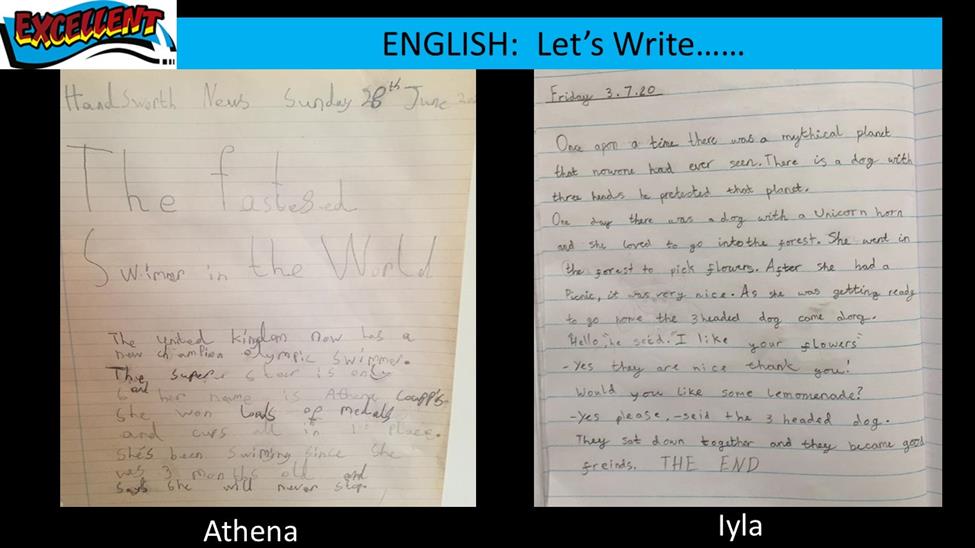 EXCELLENT
ENGLISH: Let's Write......
Handsworth News Sunday 28th June
The fastesed
Swimer in the World
The united kingdom now has a
new champion olympic swimmer.
The super star is only
6 and her name is Athena
She won loads of medals
and cups all in 1st place.
She's been swiming since she
was 3 months old and
says she will never stop.
Athena
Friday 3.7.20
Once apon a time there was a mythical planet
that nowone had ever seen. There is a dog with
three heads he protected that planet.
One day there was a dog with a Unicorn horn
and she loved to go into the forest. She went in
the forest to pick flowers. After she had a
Picnic, it was very nice. As she was getting ready
to go home the 3 headed dog came along.
"Hello" he seid. "I like your flowers"
- Yes they are nice thank you!
Would you like some lemomenade?
- Yes please, - seid the 3 headed dog.
They sat down together and they became good
freinds. THE END
Iyla